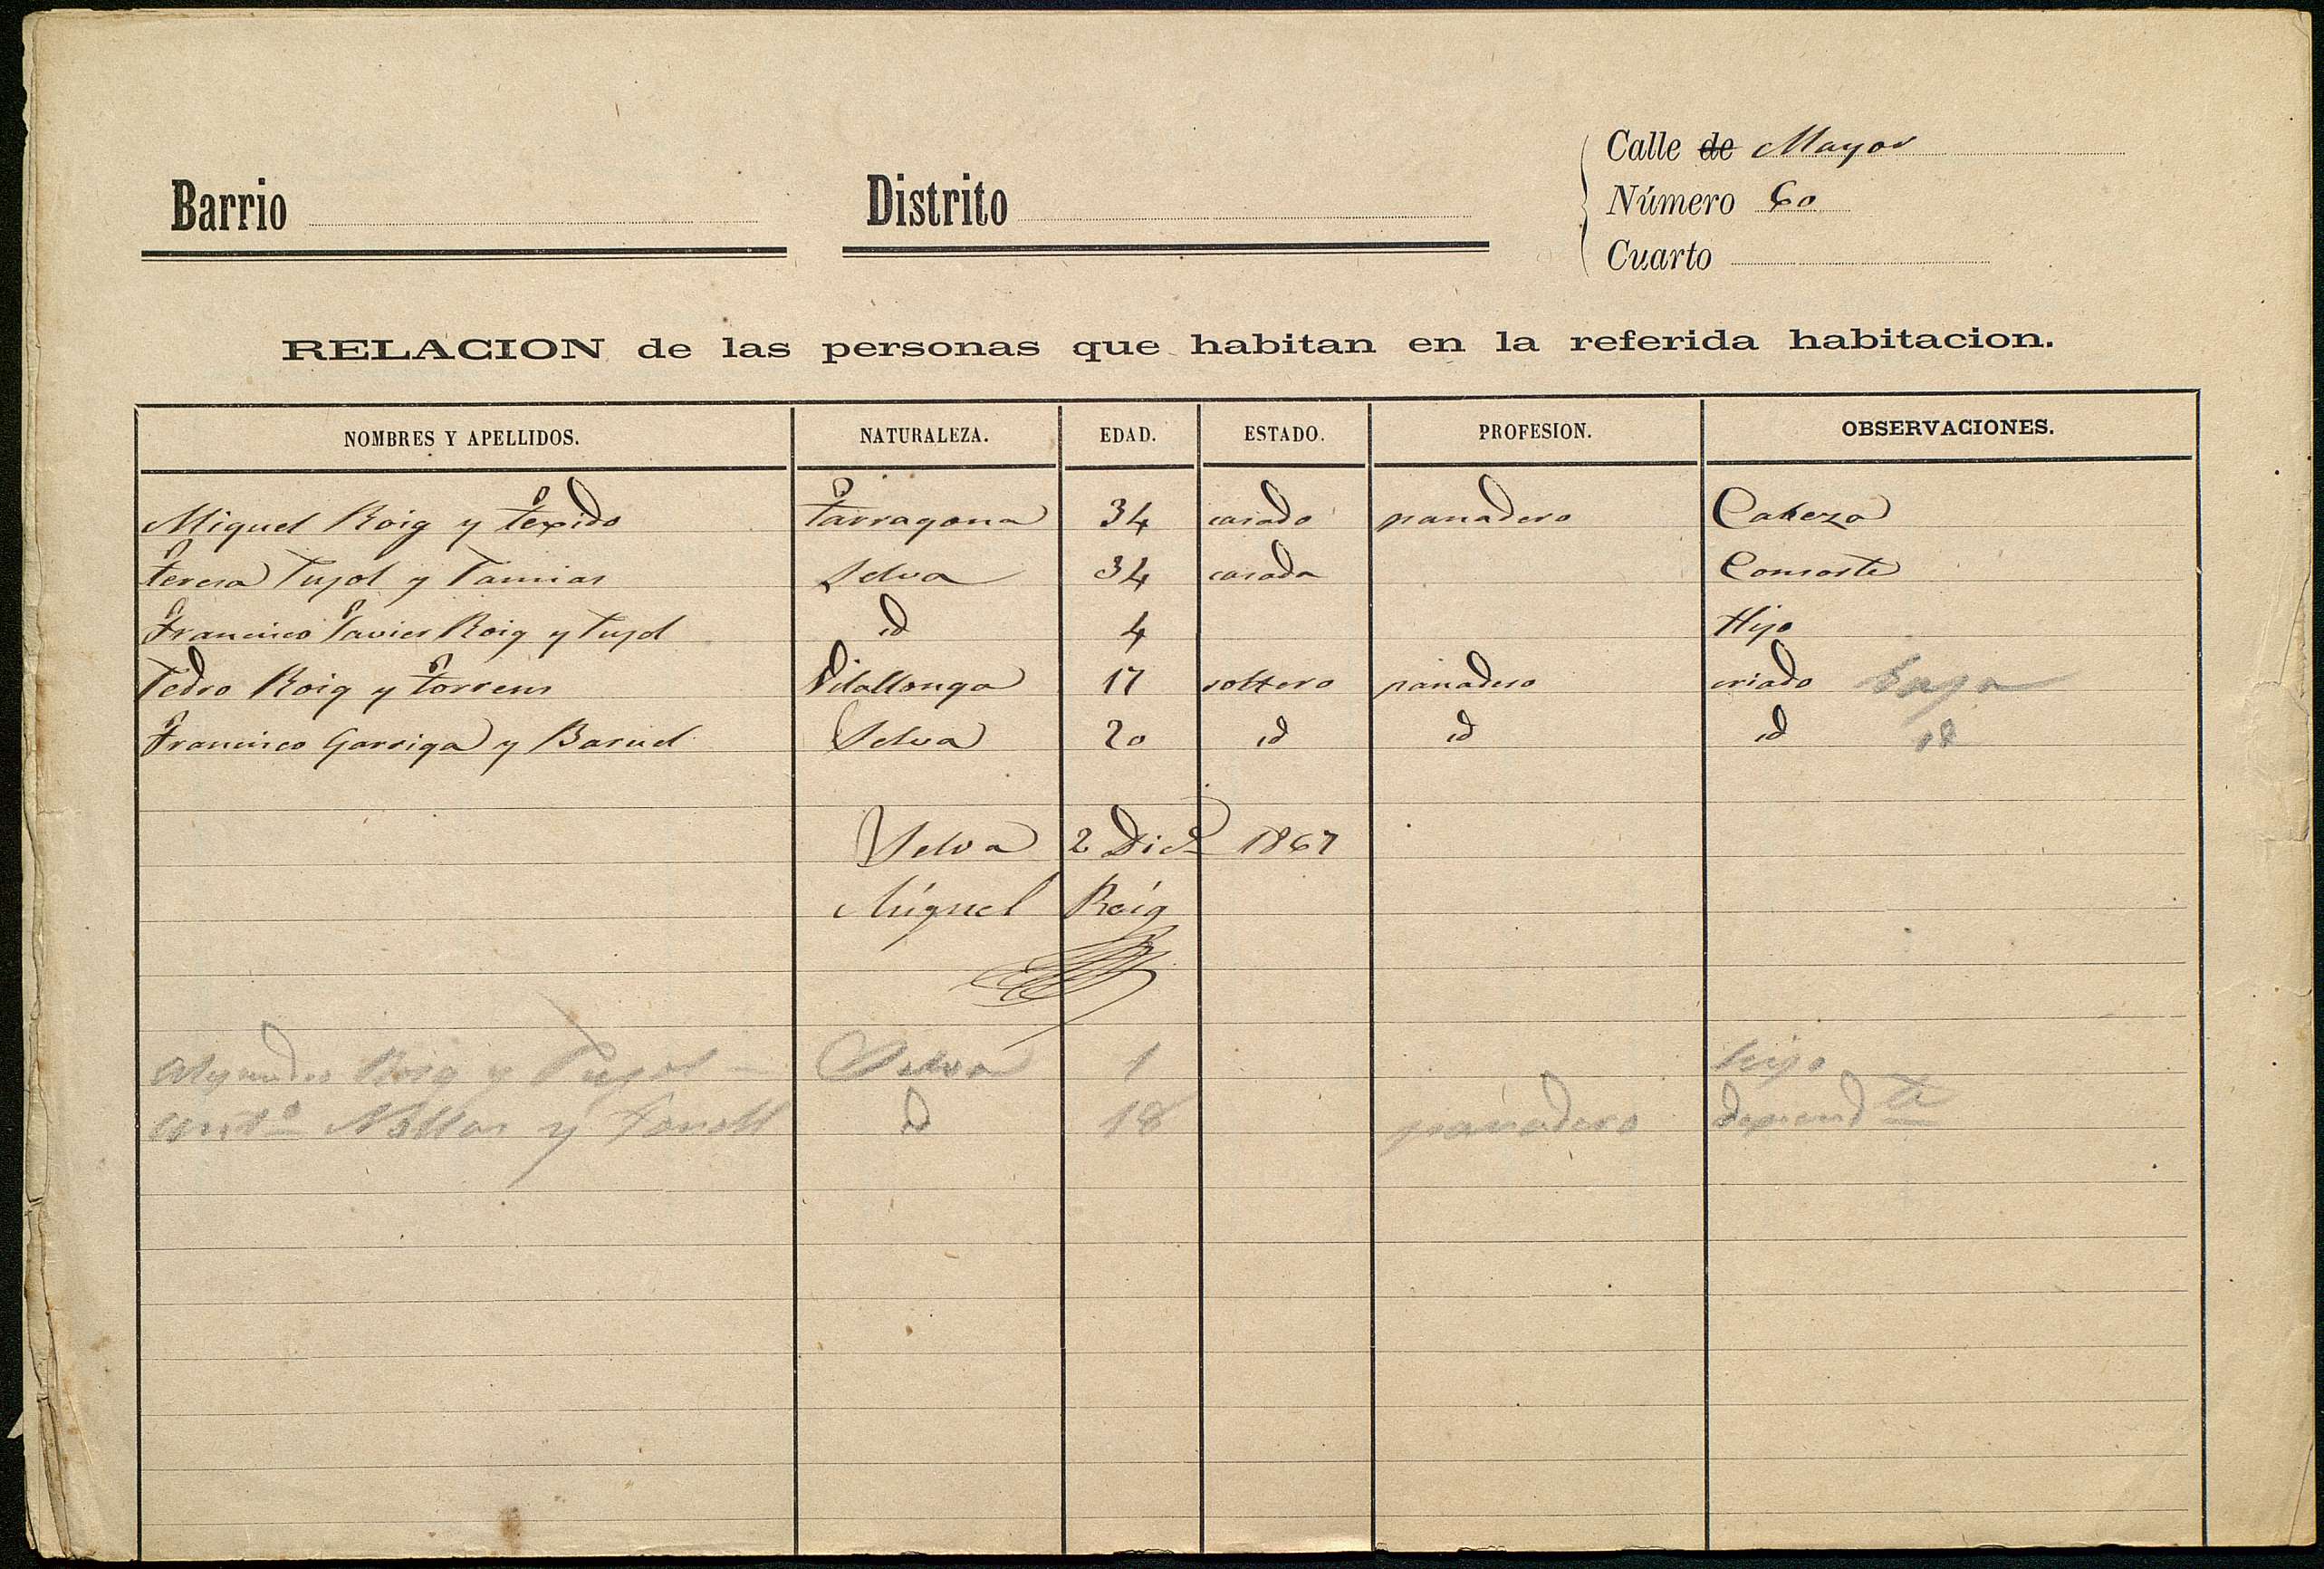 Calle de Mayor
Barrio Distrito Número 60
Cuarto
RELACION de las personas que habitan en la referida habitacion.
NOMBRES Y APELLIDOS. NATURALEZA. EDAD. ESTADO. PROFESION. OBSERVACIONES.
Miguel Roig y Texido Tarragona 34 casado panadero Cabeza
Teresa Pujol y Pamias Selva 34 casada Consorte
Francisco Javier Roig y Pujol id 4 Hijo
Pedro Roig y Torrens Vilallonga 17 soltero panadero criado baja
Francisco Garriga y Baruel Selva 20 id id id id
Selva 2 Dice 1867
Miguel Roig
Roig y Pujol Selva 1 hijo
Anto y id 18 panadero dependte